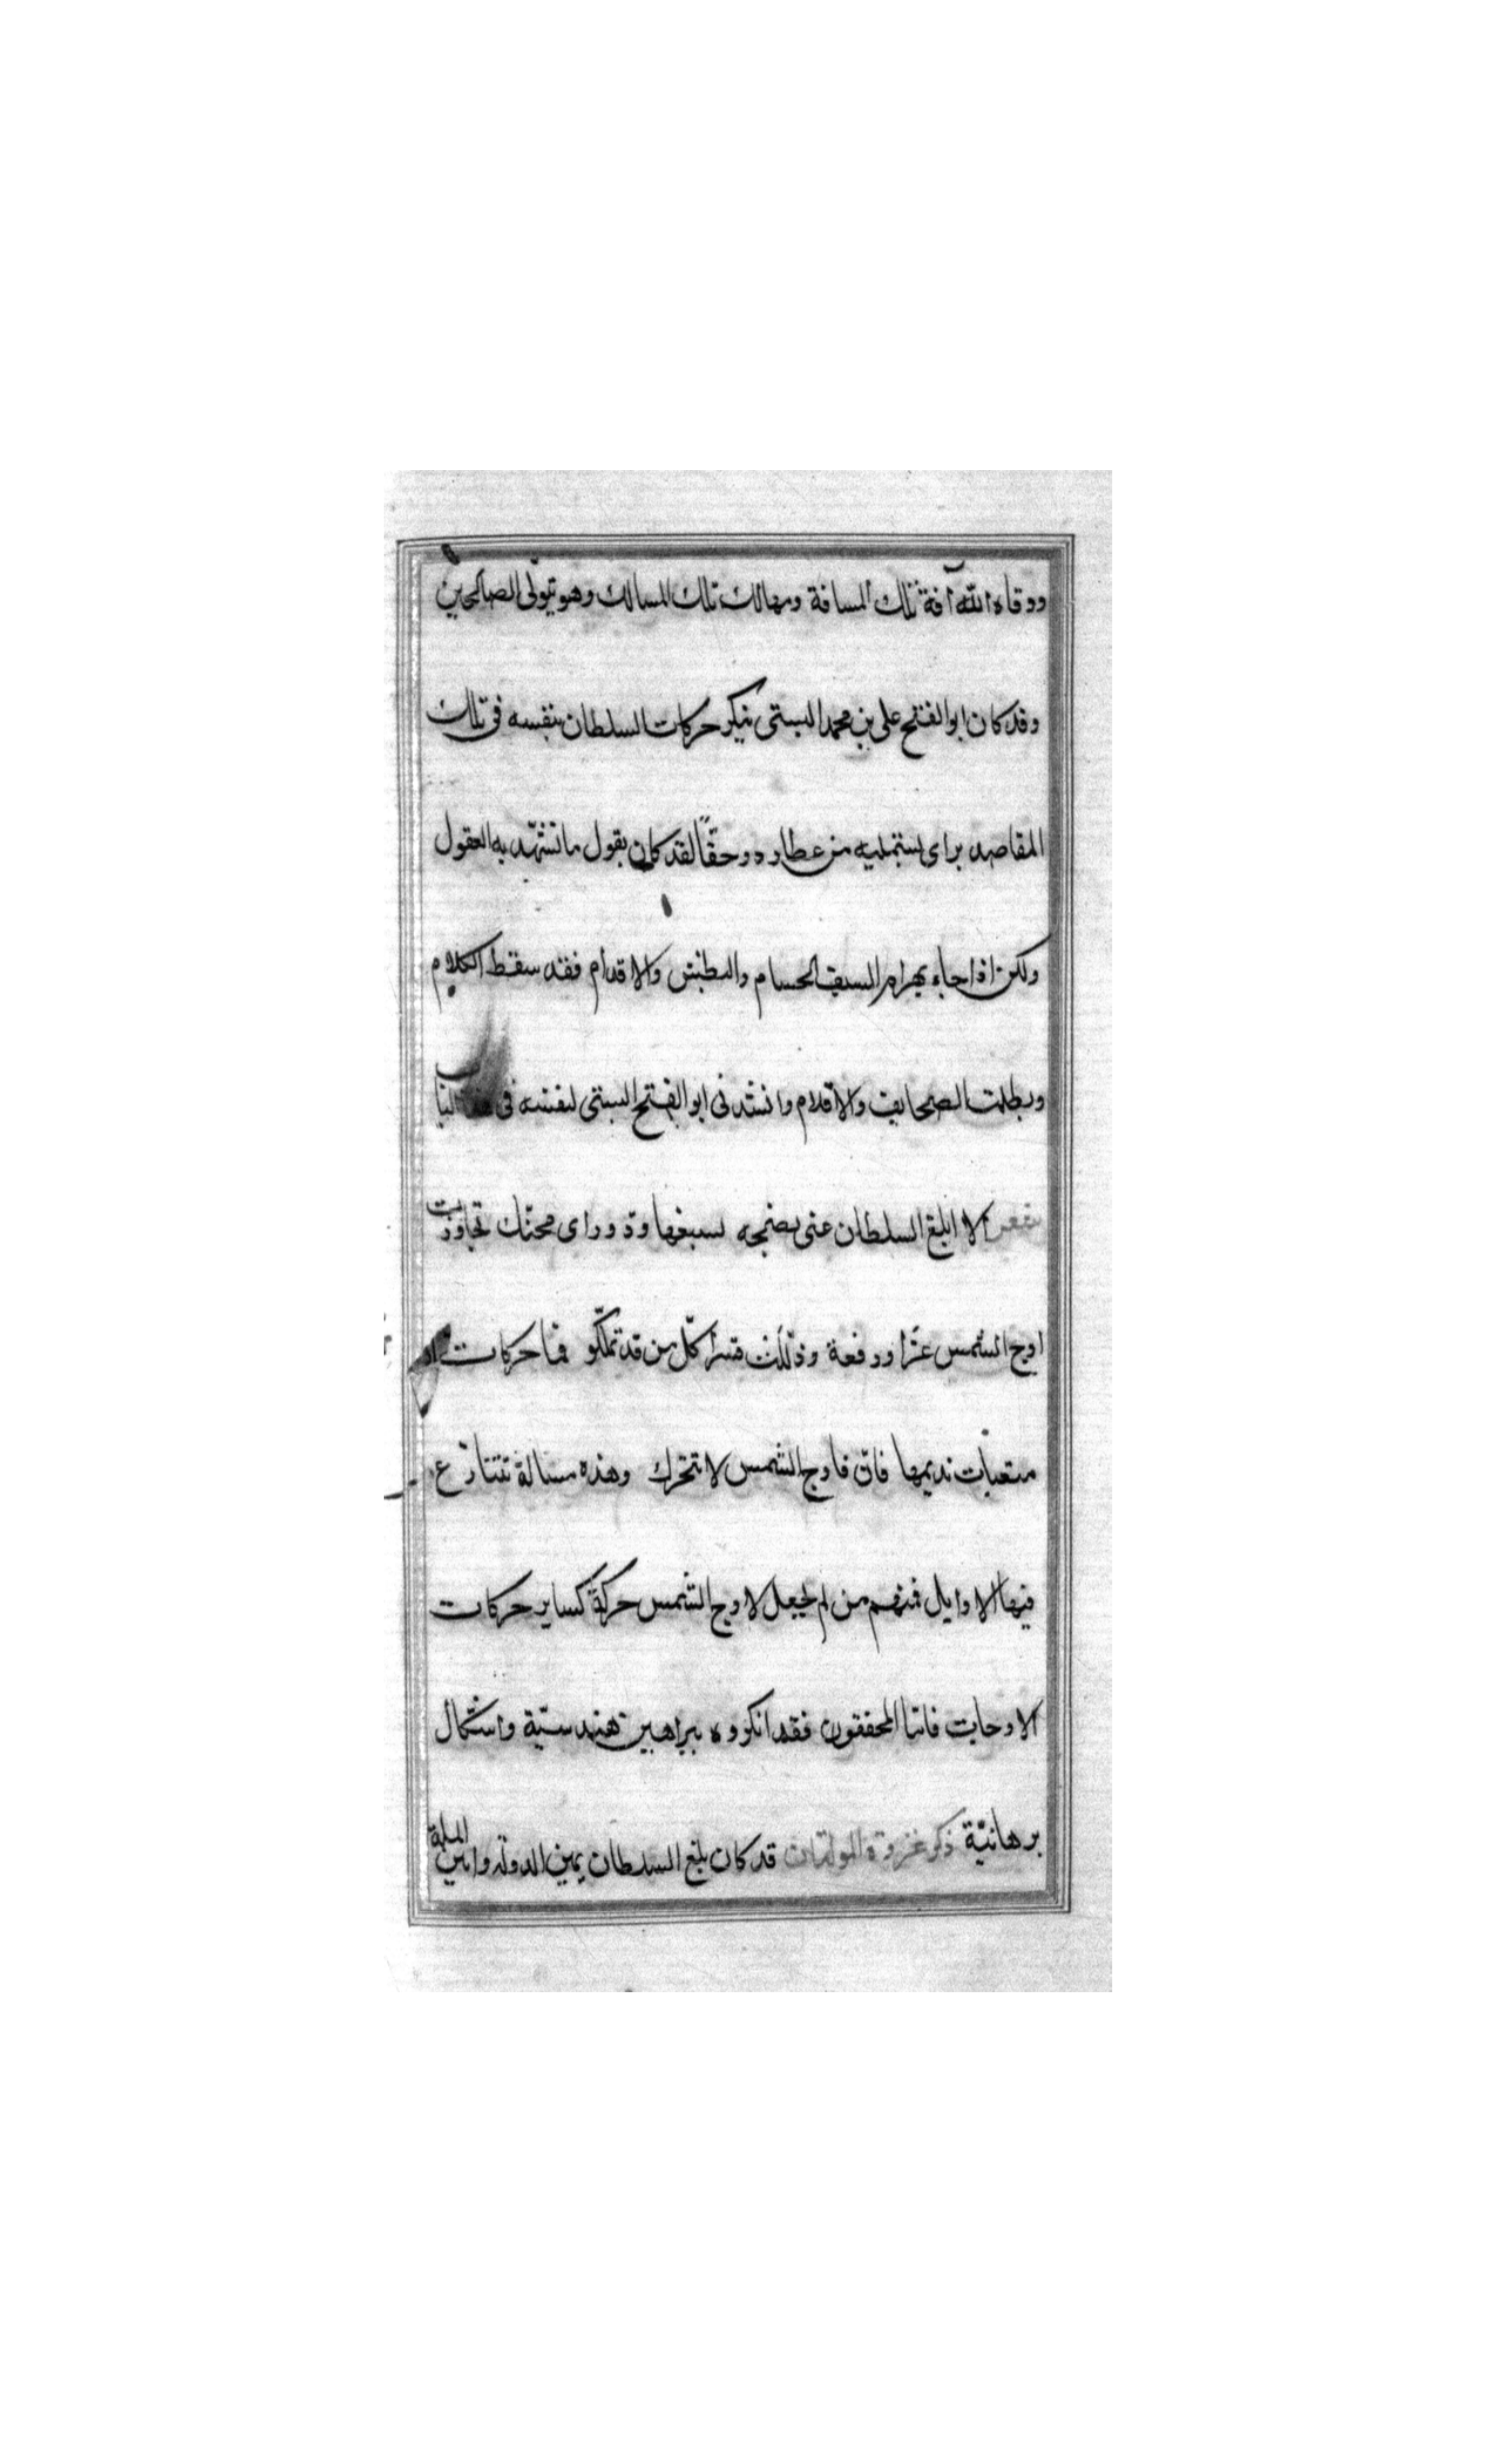 ووقاه الله آفة تلك المسافة ومهالك تلك المسالك وهو يتولى الصالحين
وقد كان ابو الفتح على بن محمد البستى ينكر حركات السلطان بنفسه فى تلك
المقاصد براى يستمليه من عطارد وحقًا لقد كان يقول ما تشهد به العقول
ولكن اذا جاء بهرام السيف الحسام والبطش والاقدام فقد سقط الكلام
وبطلت الصحايف والاقلام وانشدنى ابو الفتح البستى لنفسه فى هذا الباب
شعر الا ابلغ السلطان عنى نصيحه يسبغها ود وراى محنّك تجاوزت
اوج الشمس عزّا ورفعة وذللت قسرا كلّ من قد تملّكو فما حركات
متعبات نديمها فانّ فاوج الشمس لا تتحرك وهذه مسالة تتنازع
فيها الاوايل فمنهم من لم يجعل لاوج الشمس حركة كساير حركات
الاوجات فاما المحققون فقد انكروه ببراهين هندسيّة واشكال
برهانيّة ذكر غزوة المولتان قد كان بلغ السلطان يمين الدولة وامين الملة